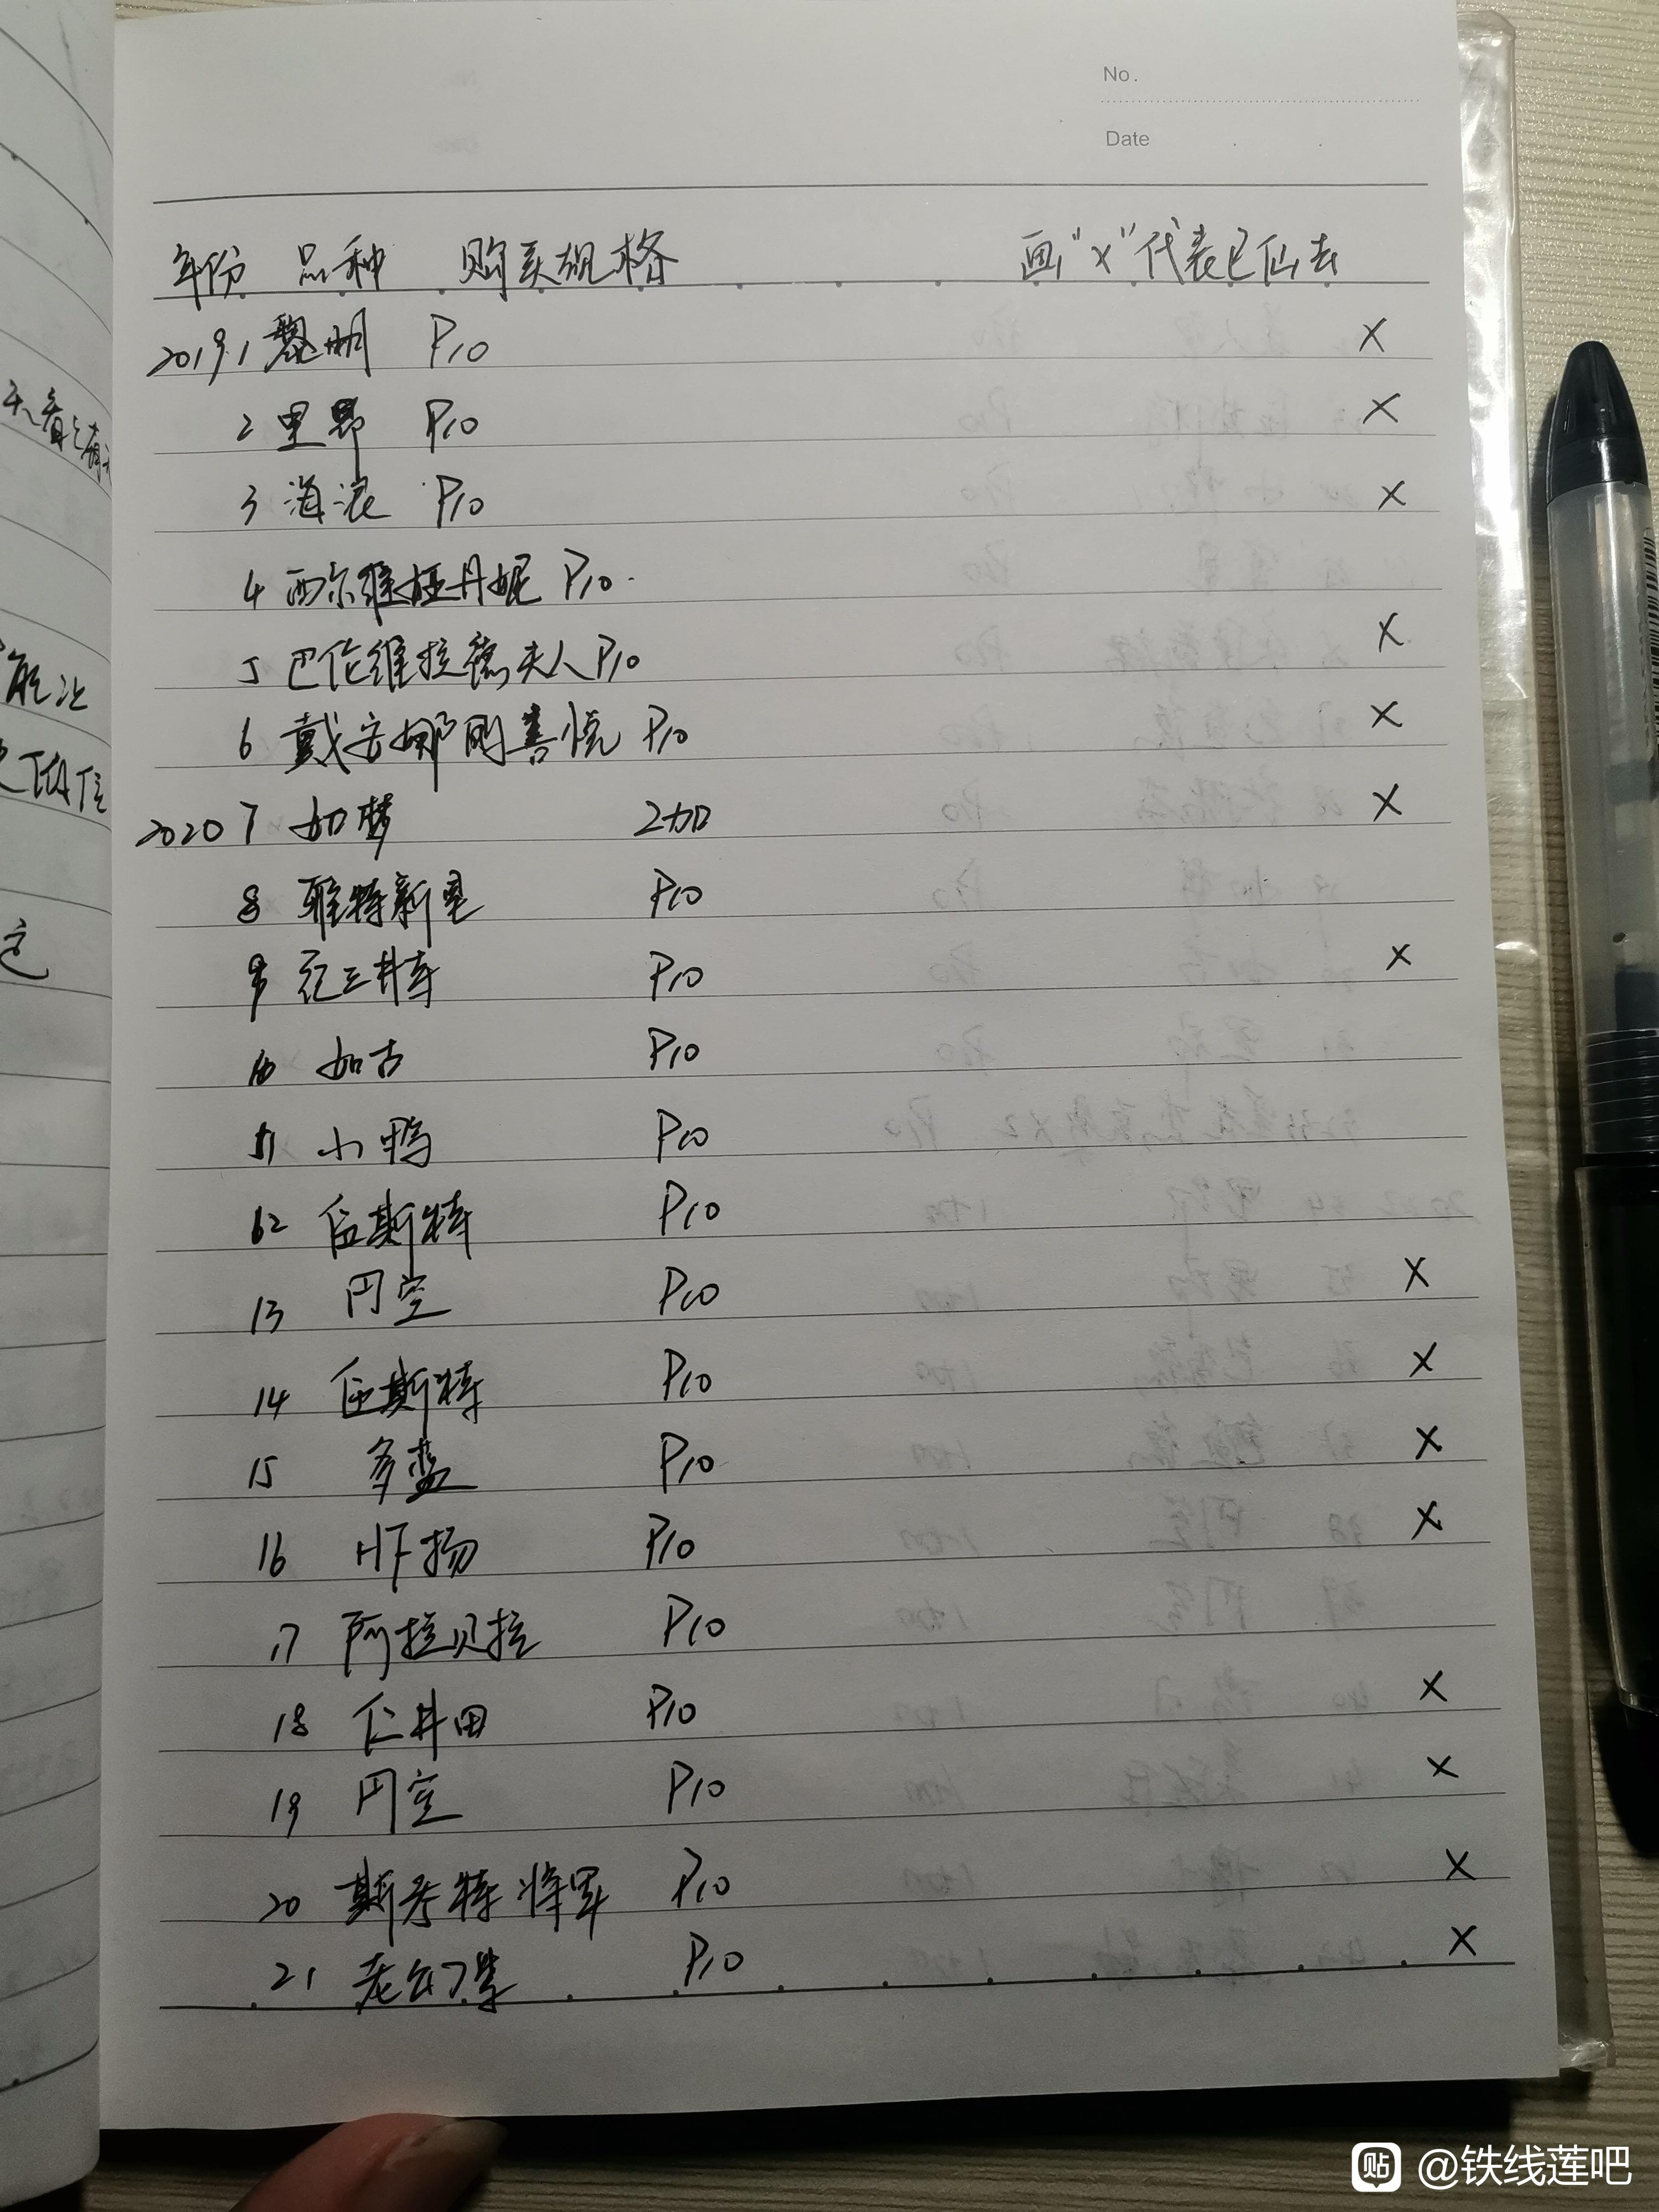 No.
Date
年份 品种 购买规格 画"x"代表已仙去
2019.1 黎明 P10 X
2 里昂 P10 X
3 海浪 P10 X
4 西尔维娅丹妮 P10.
5 巴伦维拉德夫人 P10 X
6 戴安娜刚喜悦 P10 X
2020 7 如梦 2加 X
8 雅特新星 P10
9 花三特 P10 X
10 如古 P10
11 小鸭 P10
12 伍斯特 P10
13 円空 P10 X
14 伍斯特 P10 X
15 多蓝 P10 X
16 HF扬 P10 X
17 阿拉贝拉 P10
18 仁井田 P10 X
19 円空 P10 X
20 斯秀特将军 P10 X
21 老幻紫 P10 X
能让
这
贴 @铁线莲吧